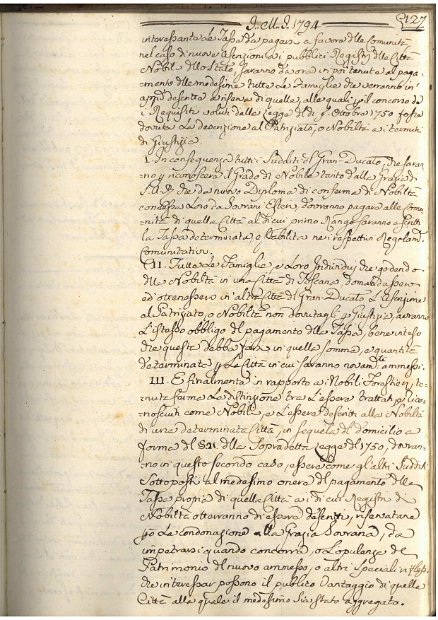 A. M. D. 1794
127
interessante la Tassa da pagarsi a favore delle Comunità
nel caso di nuove ascrizioni a pubblici Registri delle Città
Nobili dello Stato, saranno d'ora in poi tenute al paga
mento delle medesime tutte le Famiglie che verranno in
ascritte e in esse quelle, alle quali pel concorso de
Requisiti voluti dalla Legge del dì 1 Ottobre 1750 fosse
dovuta la al Patriziato, o Nobiltà a termini
di Giustizia
I. In conseguenza tutti i Sudditi del Gran-Ducato, che saran
no il Grado di Nobiltà tanto dalla Grazia di
S. A. R. che da nuovo Diploma di conferma di Nobiltà
concessa loro da Sovrani Esteri dovranno pagare alla Comu
nità di quella Città al di cui primo Rango saranno ascritti
la Tassa determinata, e stabilita nei respettivi Regolam.
Comunitativi.
II. Tutte le Famiglie, e Loro Individui che godendo
della Nobiltà in una Città di Toscana domandassero
ed ottenessero in altre Città di Gran Ducato l'ascrizione
al Patriziato, o Nobiltà non dovutagli p Giustizia, avranno
l'istesso obbligo del pagamento della Tassa, bene inteso
che questa debba farsi in quella somma, e quantità
determinata p le Città in cui saranno novam. ammessi.
III. E finalmente in rapporto ai Nobili Forestieri,
ferma la distinzione tra l'essere trattati, o rico
nosciuti come Nobili, e l'essere ascritti alla Nobiltà
di una determinata Città, in sequela di domicilio a
forma del § XI. della Sopradetta Legge del 1750, dovran
no in questo secondo caso essere come gl'altri Sudditi
Sottoposti al medesimo onere del pagamento della
Tassa propria di quella Città a i di cui Registri di
Nobiltà otterranno di essere descritti, riservatane
p la condonazione alla Grazia Sovrana, da
impetrarsi quando concorra, o l'opulenza del
Patrimonio del nuovo ammesso, o altri speciali riflessi
che interessar possono il pubblico Vantaggio di quelle
Città alle quali il medesimo sia stato aggregato.